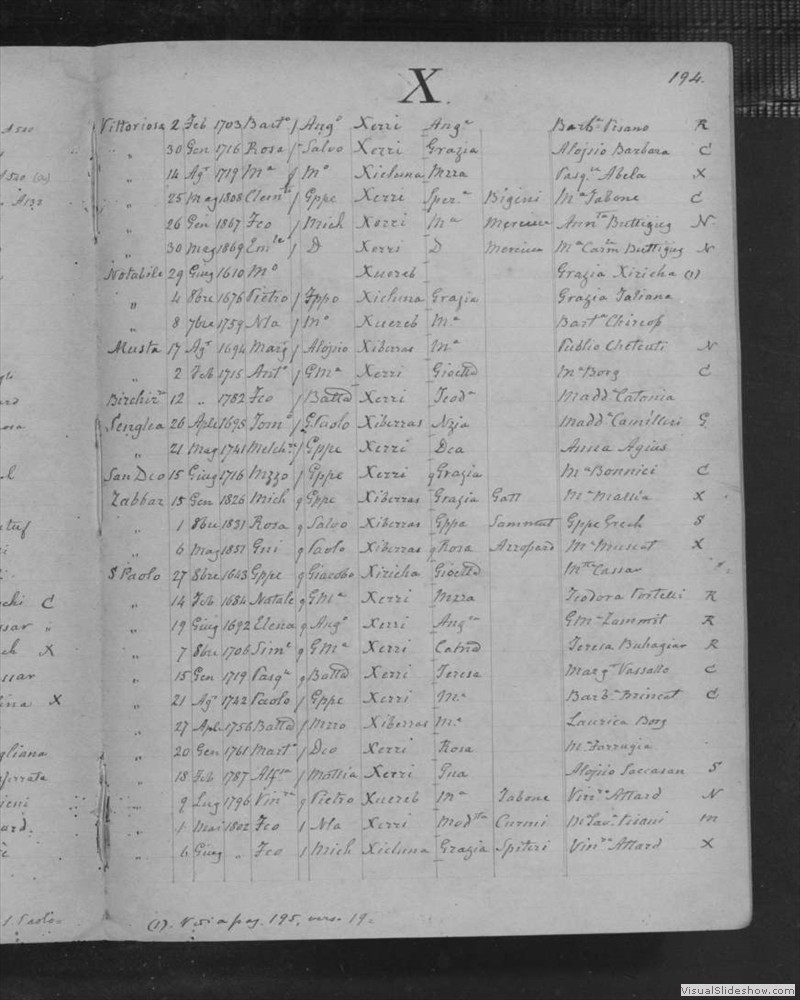 194.
X.
Vittoriosa 2 Feb 1703 Bart° / Ang° Xerri Ang.a Barb.a Pisano R
„ 30 Gen 1716 Rosa / Salvo Xerri Grazia Alojsio Barbara C
„ 14 Ag.t 1719 M.a / M.o Xicluna Mzza Pasq.a Abela X
„ 25 Mag 1808 Clem.te / Gppe Xerri Sper.a M.a Tabone C
„ 26 Gen 1867 Fco / Mich Xerri M.a Mercieca Ann.ta Buttigieg N
„ 30 Mag 1869 Em.le / D Xerri D Mercieca M.a Carm Buttigieg N
Notabile 29 Giug 1610 M.o Xuereb Grazia Xiricha (1)
„ 4 8bre 1676 Pietro / Fppo Xicluna Grazia Grazia Galiana
„ 8 7bre 1759 Nla / M.o Xuereb M.a Bart.a Chircop
Musta 17 Ag.t 1694 Marg / Alojsio Xiberras M.a Publio Chetcuti N
„ 2 Feb 1715 Ant.o / GM.a Xerri Gioetta M.a Borg C
Birchir.a 12 „ 1782 Fco / Batta Xerri Teod.a Madd.a Catania
Senglea 26 Aple 1695 Tom.o / G.Paolo Xiberras Nzia Madd.a Camilleri G
„ 21 Mag 1741 Melch.re / Gppe Xerri Dea Anna Agius
San Dco 15 Giug 1716 Mzzo / Gppe Xerri q Grazia M.a Bonnici C
Zabbar 15 Gen 1826 Mich q Gppe Xiberras Grazia Gatt M.a Mallia X
„ 1 8bre 1831 Rosa q Salvo Xiberras Gppa Sammut Gppe Grech S
„ 6 Mag 1851 Gni q Paolo Xiberras q Rosa Azzopard M.a Muscat X
S Paolo 27 8bre 1643 Gppe q Giacobo Xiricha Gioetta M.a Cassar
„ 14 Feb 1684 Natale q GM.a Xerri Mzza Teodora Portelli R
„ 19 Giug 1692 Elena q Ang.o Xerri Ang.ca GM.a Zammit R
„ 7 8bre 1706 Sim.e q GM.a Xerri Catnd Teresa Buhagiar R
„ 15 Gen 1719 Pasq.e q Batta Xerri Teresa Marg.t Vassallo C
„ 21 Ag.t 1742 Paolo / Gppe Xerri M.a Barb.a Brincat C
„ 27 Apl 1756 Batta / Mzzo Xiberras M.a Laurica Borg
„ 20 Gen 1761 Mart.o / Dco Xerri Rosa M.a Farrugia
„ 18 Feb 1787 / Mattia Xerri Gna Alojsio Saccasan S
„ 9 Lug 1796 Vin.za q Pietro Xuereb M.a Tabone Vin.zo Attard N
„ 1 Mar 1802 Fco / Nla Xerri Mod.sta Curmi M.a Pisani m
„ 6 Giug „ Fco / Mich Xicluna Grazia Spiteri Vin.za Attard X
(1). Vedi a pag. 195, verso 19.
VisualSlideshow.com